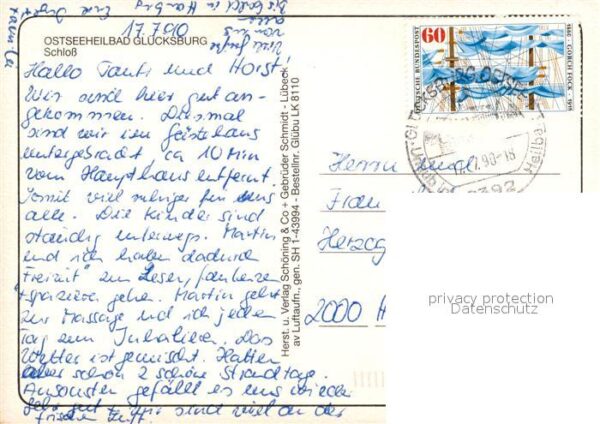 17.7.90
OSTSEEHEILBAD GLÜCKSBURG
Schloß
Hallo Tanti und Horst!
Wir sind hier gut an-
gekommen. Diesmal
sind wir im Gästehaus
untergebracht ca 10 Min
vom Haupthaus entfernt.
Somit viel ruhiger für uns
alle. Die Kinder sind
ständig unterwegs. Martin
und ich haben dadurch
"Freizeit" zum Lesen, faulenzen
+ spazieren gehen. Martin geht
zur Massage und ich jeden
Tag zum Inhalieren. Das
Wetter ist gemischt. Hatten
aber schon 2 schöne Strandtage.
Ansonsten gefällt es uns wieder
sehr gut + wir sind viel an der
frischen Luft.
Herst. u. Verlag Schöning & Co + Gebrüder Schmidt - Lübeck
av Luftaufn., gen. SH 1-43994 - Bestellnr. Glübu LK 8110
60
DEUTSCHE BUNDESPOST
1880 · GORCH FOCK · 1916
.90-18
2392
Herrn und
Frau
Herzog
2000 H
privacy protection
Datenschutz